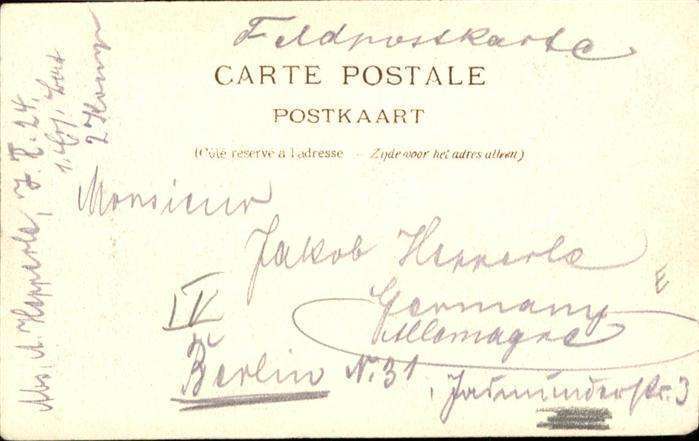 Feldpostkarte
CARTE POSTALE
POSTKAART
(Côté réservé à l'adresse - Zijde voor het adres alleen)
Monsieur
Jakob Hepperle
Germany
Allemagne
IV
Berlin N. 31
Jasmunderstr. 3
Abs. A. Hepperle, J. R. 24.
1. Ers. Bat
2 Komp